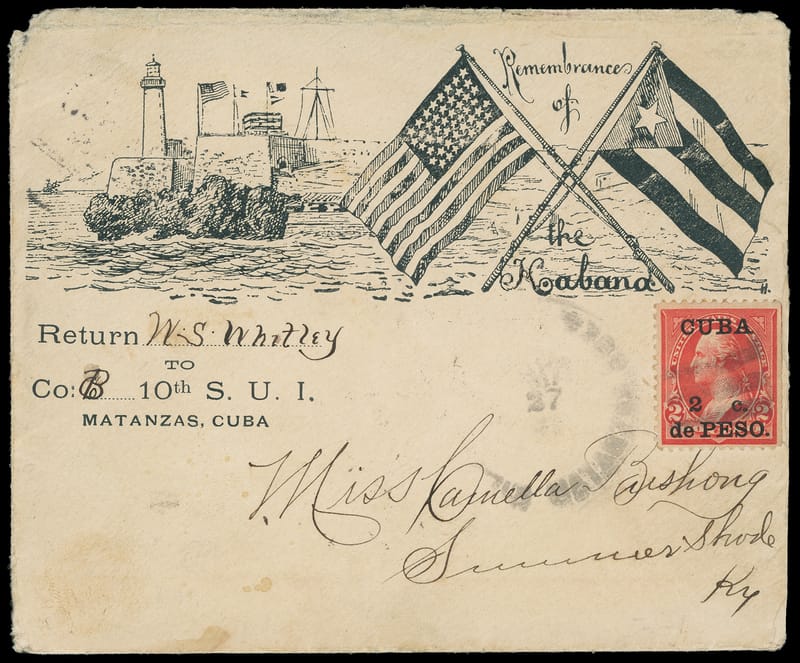 Remembrances
of
the
Habana
Return W. S. Whitley
TO
Co: B 10th S. U. I.
MATANZAS, CUBA
27
CUBA
2 c.
de PESO.
2 2
Miss Camella Bushong
Summer Shade
Ky